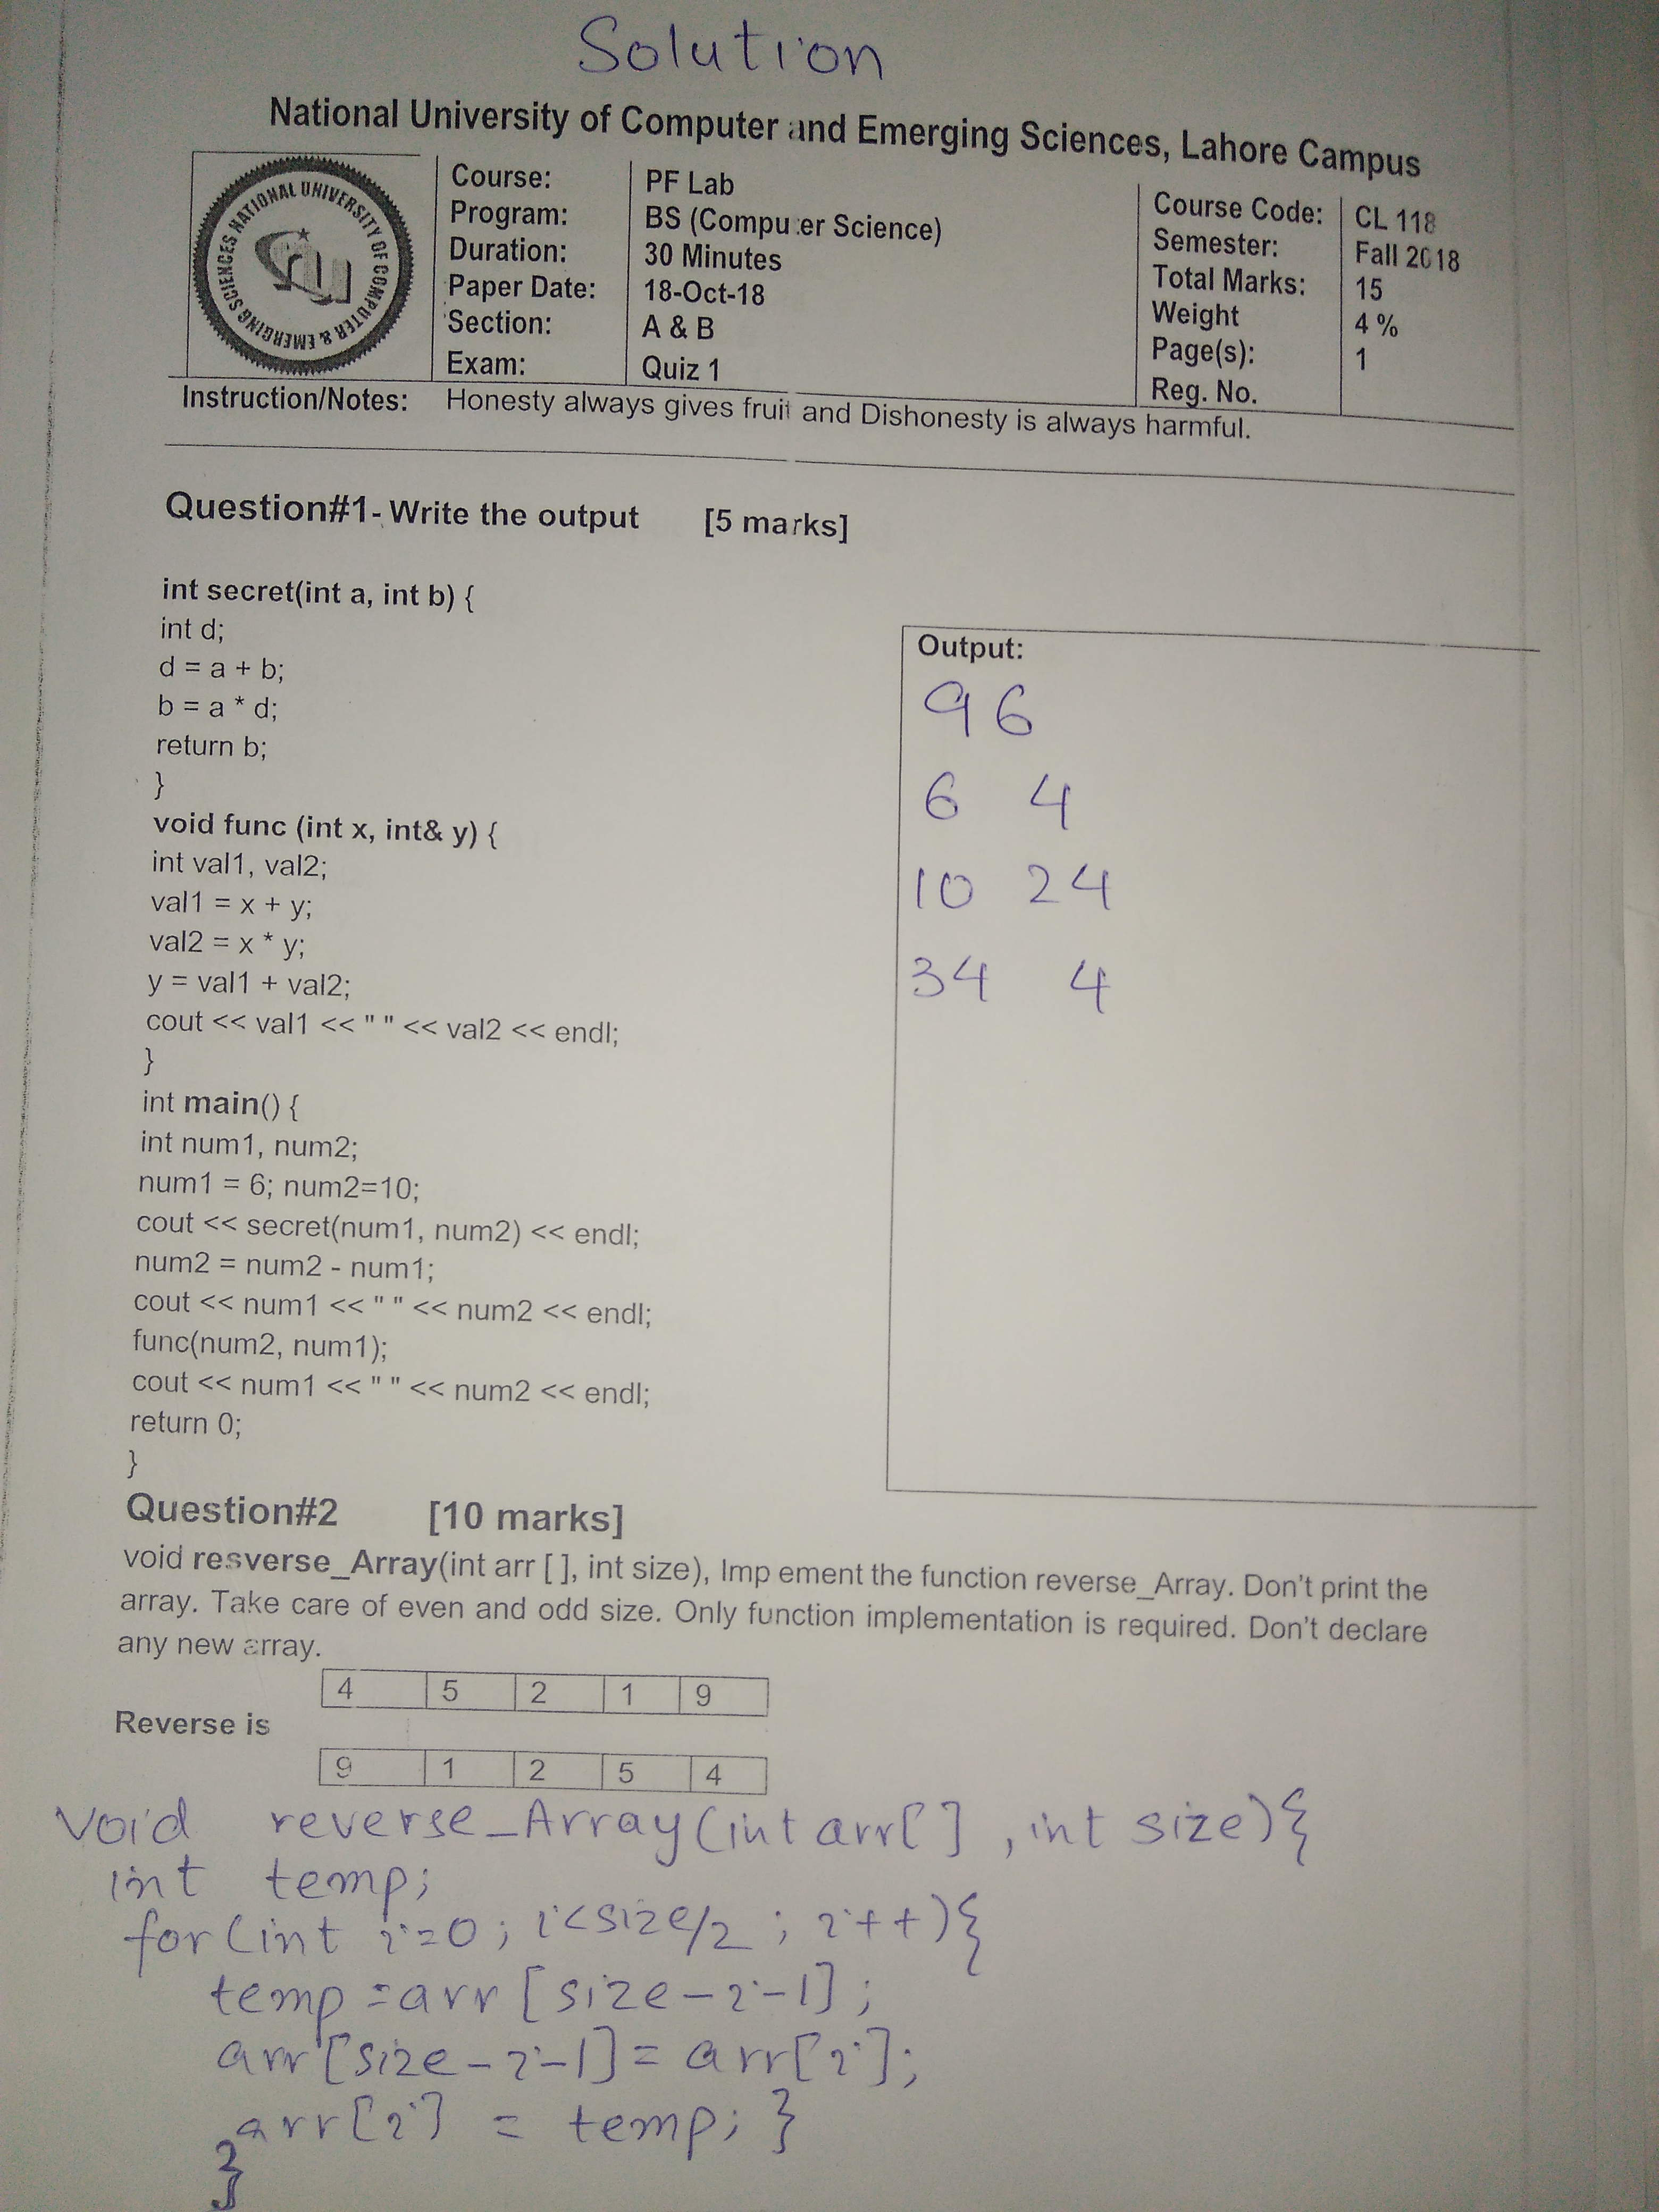 Solution
National University of Computer and Emerging Sciences, Lahore Campus
NATIONAL UNIVERSITY OF COMPUTER & EMERGING SCIENCES
Course: PF Lab Course Code: CL 118
Program: BS (Computer Science) Semester: Fall 2018
Duration: 30 Minutes Total Marks: 15
Paper Date: 18-Oct-18 Weight 4 %
Section: A & B Page(s): 1
Exam: Quiz 1 Reg. No.
Instruction/Notes: Honesty always gives fruit and Dishonesty is always harmful.
Question#1- Write the output [5 marks]
int secret(int a, int b) {
int d;
d = a + b;
b = a * d;
return b;
}
void func (int x, int& y) {
int val1, val2;
val1 = x + y;
val2 = x * y;
y = val1 + val2;
cout << val1 << " " << val2 << endl;
}
int main() {
int num1, num2;
num1 = 6; num2=10;
cout << secret(num1, num2) << endl;
num2 = num2 - num1;
cout << num1 << " " << num2 << endl;
func(num2, num1);
cout << num1 << " " << num2 << endl;
return 0;
}
Output:
96
6 4
10 24
34 4
Question#2 [10 marks]
void resverse_Array(int arr [ ], int size), Imp ement the function reverse_Array. Don't print the
array. Take care of even and odd size. Only function implementation is required. Don't declare
any new array.
4 5 2 1 9
Reverse is
9 1 2 5 4
void reverse_Array(int arr[] , int size){
int temp;
for(int i=0; i<size/2 ; i++){
temp=arr[size-i-1];
arr[size-i-1]= arr[i];
arr[i] = temp; }
}